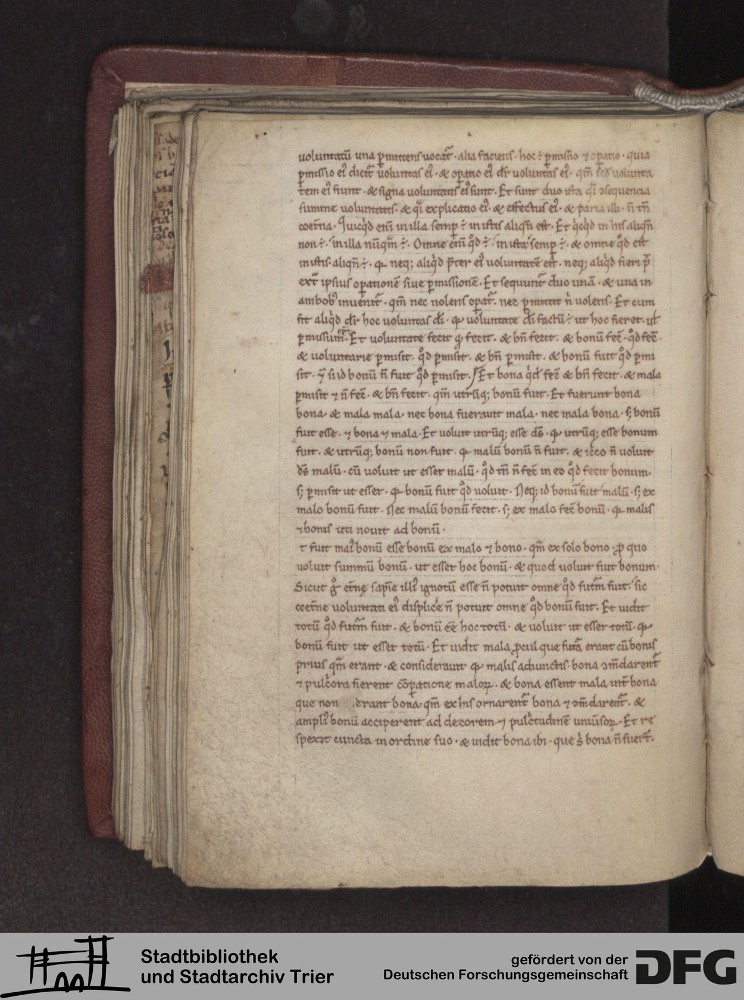 voluntatū una ꝑmittens vocat̄. alia faciens. hoc ÷ ꝑmissio ⁊ oꝑatio. quia
ꝑmissio eꝰ dicit̄ voluntas eꝰ. & oꝑatio eꝰ dr̄ voluntas eꝰ. qm̄ scdm volunta
tem eꝰ fiunt. & signa voluntatis eꝰ sunt. Et sunt duo ista q̄si ɔsequencia
summe voluntatis. & q̄si explicatio eꝰ & effectus eꝰ. & paria illi. ⁊ n̄ tm̄
coet̄na. Quicq̄d eni in illa semꝑ ÷ in istis aliqn̄ est. Et q̄cq̄d in his aliqn̄
non ÷. in illa nūqm̄ ÷. Omne enī qd ÷. in ista semꝑ ÷. & omne qd est
in istis aliqn̄ ÷. qꝛ neq; aliqd p̄ter eꝰ voluntatē est. neq; aliqd fieri p̄t
ext̄ ipsius oꝑationē siue ꝑmissionē. Et sequunt̄ duo unā. & una in
ambobꝰ invenit̄. qm̄ nec nolens oꝑat̄. nec ꝑmittit n̄ volens. Et cum
fit aliqd dr̄ hoc voluntas di. qꝛ voluntate di factū ÷ ut hoc fieret. ul
ꝑmissum. Et voluntate fecit q fecit. & bn̄ fecit. & bonū fec̄. qd fec̄.
& voluntarie ꝑmisit. qd ꝑmisit. & bn̄ ꝑmisit. & bonū fuit qd ꝑmi
sit. & si id bonū n̄ fuit qd ꝑmisit. Et bona qd fec̄ & bn̄ fecit. & mala
ꝑmisit ⁊ n̄ fec̄. & bn̄ fecit. qm̄ utrūq; bonū fuit. Et fuerunt bona
bona. & mala mala. nec bona fuerunt mala. nec mala bona. s; bonū
fuit esse. ⁊ bona ⁊ mala. Et voluit utrūq; esse ds̄. qꝛ utrūq; esse bonum
fuit. & utrūq; bonū non fuit. qꝛ malū bonū n̄ fuit. & icc̄o n̄ voluit
ds̄ malū. cū voluit ut esset malū. qd tm̄ n̄ fec̄ in eo qd fecit bonum.
s; ꝑmisit ut esset. qꝛ bonū fuit qd voluit. Neq; id bonū fuit malū. s; ex
malo bonū fuit. Nec malū bonū fecit. s; ex malo fec̄ bonū. qꝛ malis
⁊ bonis uti nouit ad bonū.
fuit maiꝰ bonū esse bonū ex malo ⁊ bono. qm̄ ex solo bono. ꝓ quo
voluit summū bonū. ut esset hoc bonū. & quod voluit fuit bonum.
Sicut g̊ et̄nę sapiē illiꝰ ignotū esse n̄ potuit omne qd futm̄ fuit. sic
coet̄ne voluntati eꝰ displice n̄ potuit omne qd bonū fuit. Et uidit
totū qd futm̄ fuit. & bonū ēe hoc totū. & voluit ut esset totū. qꝛ
bonū fuit ut esset totū. Et uidit mala ꝓcul que futa erant cū bonis
prius qm̄ erant. & considerauit qꝛ malis adiunctis bona ɔm̄darent̄
⁊ pulcͥora fierent cōꝑatione maloꝝ. & bona essent mala int̄ bona
que non erant bona. qm̄ ex his ornarent̄ bona ⁊ ɔm̄darent̄. &
ampliꝰ bonū acciperent ad decorem ⁊ pulcͥtudinē uniūsoꝝ. Et re
spexit cuncta in ordine suo. & uidit bona ibi. que s̄ bona n̄ fuerͭ.
Stadtbibliothek
und Stadtarchiv Trier
gefördert von der
Deutschen Forschungsgemeinschaft
DFG